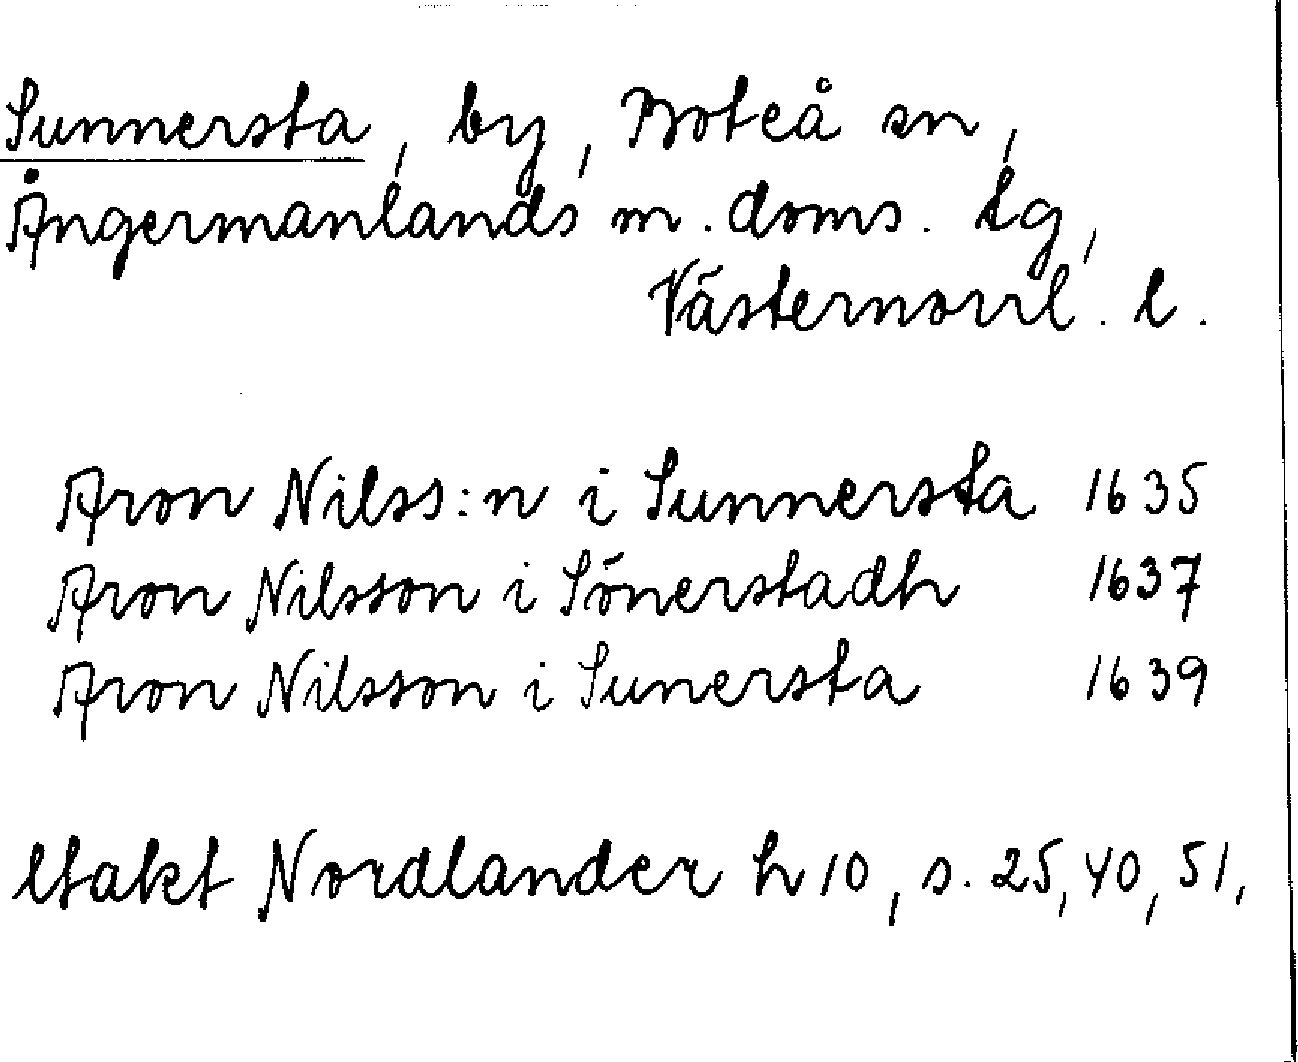 Sunnersta, by, Boteå sn,
Ångermanlands m. doms. tg,
Västernorrl. l.
Aron Nilss:n i Sunnersta 1635
Aron Nilsson i Sönerstadh 1637
Aron Nilsson i Sunersta 1639
Utakt Nordlander h 10, s. 25, 40, 51,